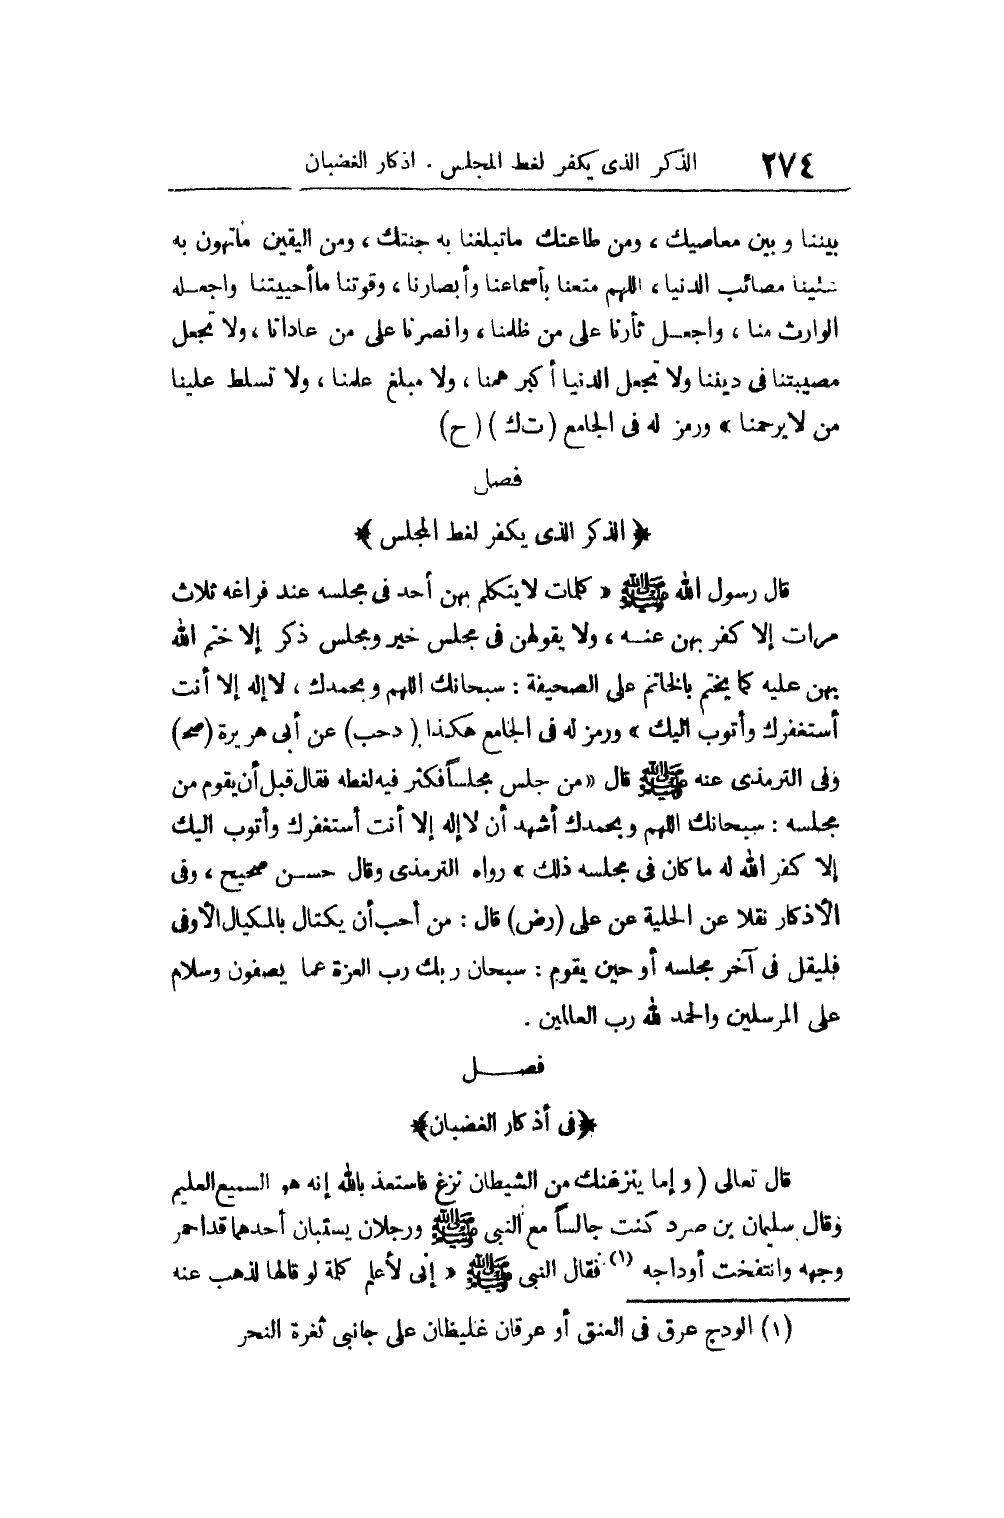 ٢٧٤ الذكر الذى يكفر لغط المجلس . اذكار الغضبان
بيننا وبين معاصيك ، ومن طاعتك ماتبلغنا به جنتك ، ومن اليقين ماتهون به
علينا مصائب الدنيا ، اللهم متعنا بأسماعنا وأبصارنا ، وقوتنا ماأحييتنا واجعله
الوارث منا ، واجعل ثأرنا على من ظلمنا ، وانصرنا على من عادانا ، ولا تجعل
مصيبتنا فى ديننا ولا تجعل الدنيا أكبر همنا ، ولا مبلغ علمنا ، ولا تسلط علينا
من لايرحمنا » ورمز له فى الجامع ( ت ك ) ( ح )
فصل
﴿ الذكر الذى يكفر لغط المجلس ﴾
قال رسول الله ﷺ « كلمات لايتكلم بهن أحد فى مجلسه عند فراغه ثلاث
مرات إلا كفر بهن عنه ، ولا يقولهن فى مجلس خير ومجلس ذكر إلا ختم الله
بهن عليه كما يختم بالخاتم على الصحيفة : سبحانك اللهم وبحمدك ، لاإله إلا أنت
أستغفرك وأتوب اليك » ورمز له فى الجامع هكذا ( دحب ) عن أبى هريرة (صح)
وفى الترمذى عنه ﷺ قال «من جلس مجلساً فكثر فيه لغطه فقال قبل أن يقوم من
مجلسه : سبحانك اللهم وبحمدك أشهد أن لاإله إلا أنت أستغفرك وأتوب اليك
إلا كفر الله له ما كان فى مجلسه ذلك » رواه الترمذى وقال حسن صحيح ، وفى
الأذكار نقلا عن الحلية عن على (رض) قال : من أحب أن يكتال بالمكيال الأوفى
فليقل فى آخر مجلسه أو حين يقوم : سبحان ربك رب العزة عما يصفون وسلام
على المرسلين والحمد لله رب العالمين .
فصل
﴿فى أذكار الغضبان﴾
قال تعالى ( وإما ينزغنك من الشيطان نزغ فاستعذ بالله إنه هو السميع العليم
وقال سليمان بن صرد كنت جالساً مع النبى ﷺ ورجلان يستبان أحدهما قد احمر
وجهه وانتفخت أوداجه (١) فقال النبى ﷺ « إنى لأعلم كلمة لو قالها لذهب عنه
(١) الودج عرق فى العنق أو عرقان غليظان على جانبى ثغرة النحر